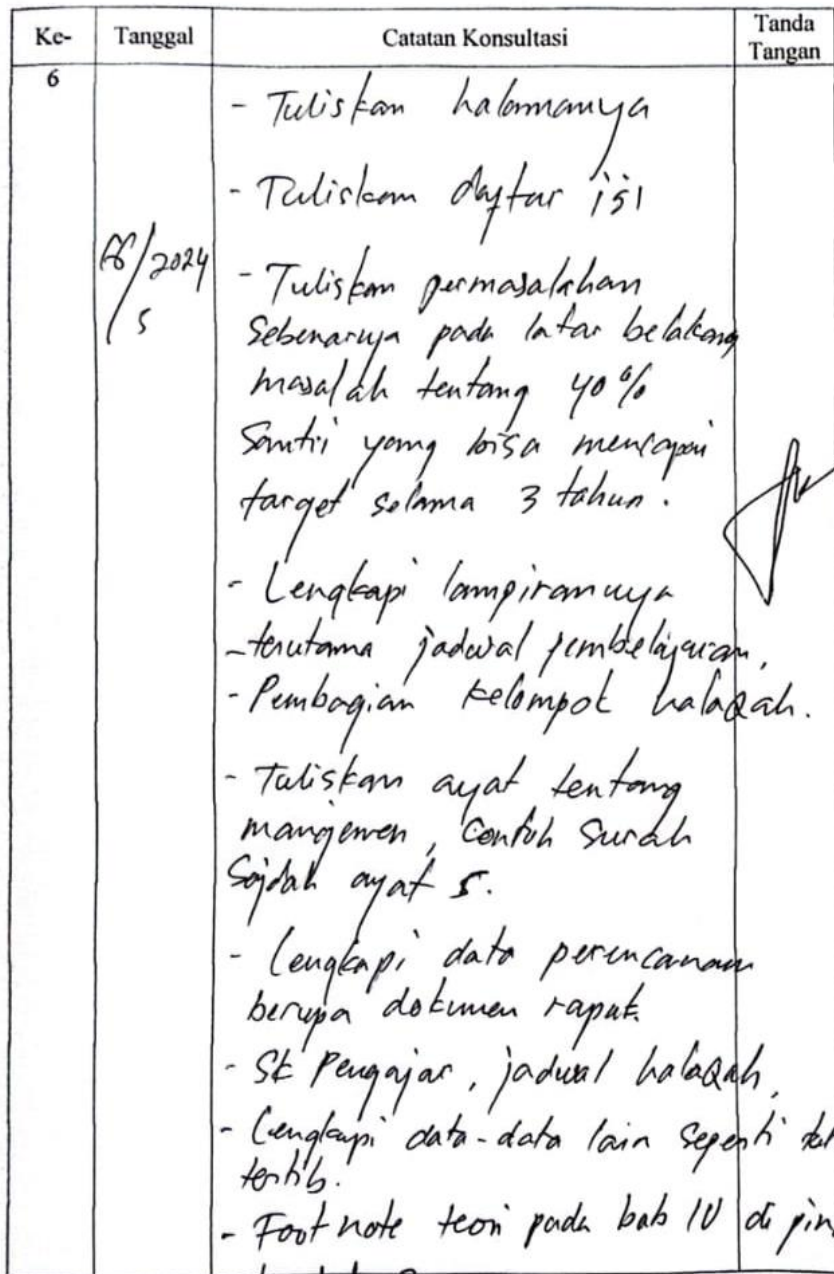 Ke- Tanggal Catatan Konsultasi Tanda Tangan
6
- Tuliskan halamanya
- Tuliskan daftar isi
/2024
5
- Tuliskan permasalahan
Sebenarnya pada latar belakang
masalah tentang 40%
Santri yang bisa mencapai
target selama 3 tahun.
- Lengkapi lampirannya
- terutama jadwal pembelajaran,
- Pembagian kelompok halaqah.
- Tuliskan ayat tentang
manajemen, Contoh Surah
Sajdah ayat 5.
- Lengkapi data perencanaan
berupa dokumen rapat.
- SK Pengajar, jadwal halaqah,
- Lengkapi data-data lain seperti
tertib.
- Foot note teori pada bab IV di